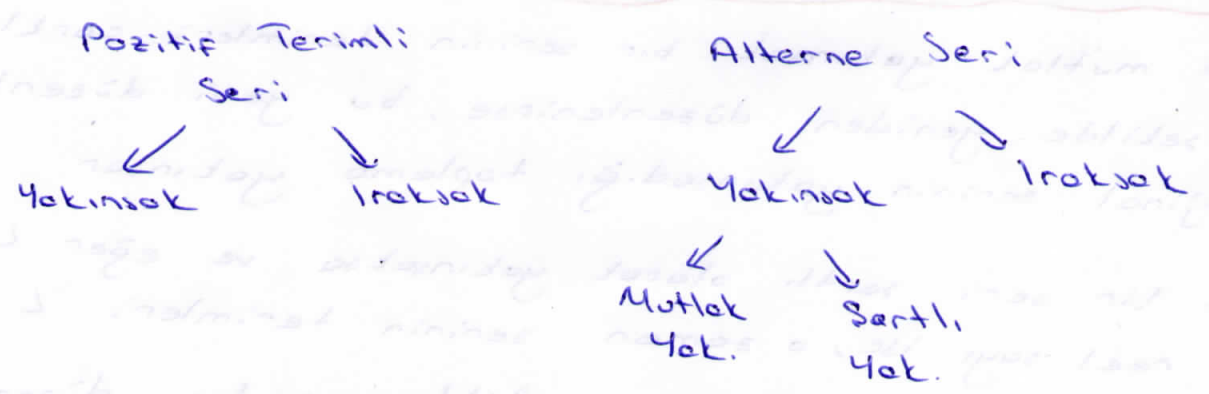 Pozitif Terimli
Seri
Yakınsak
Iraksak
Alterne Seri
Yakınsak
Iraksak
Mutlak
Yak.
Şartlı
Yak.